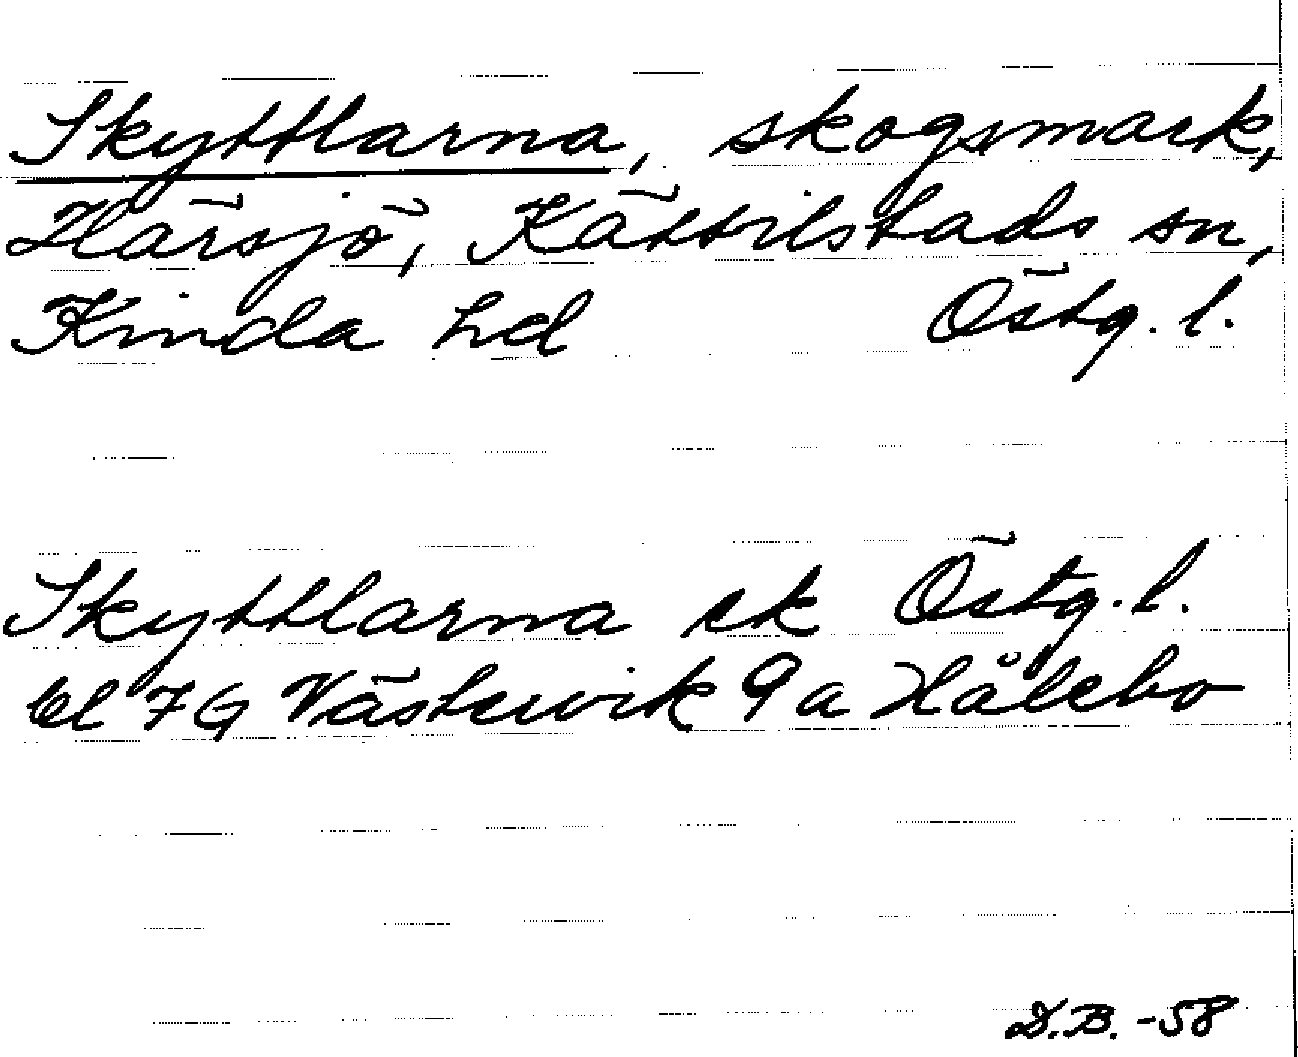 Skyttlarna, skogsmark,
Härsjö, Kättilstads sn,
Kinda hd Östg. l.
Skyttlarna ek Östg. l.
bl 7G Västervik 9a Hålebo
D.B. -58